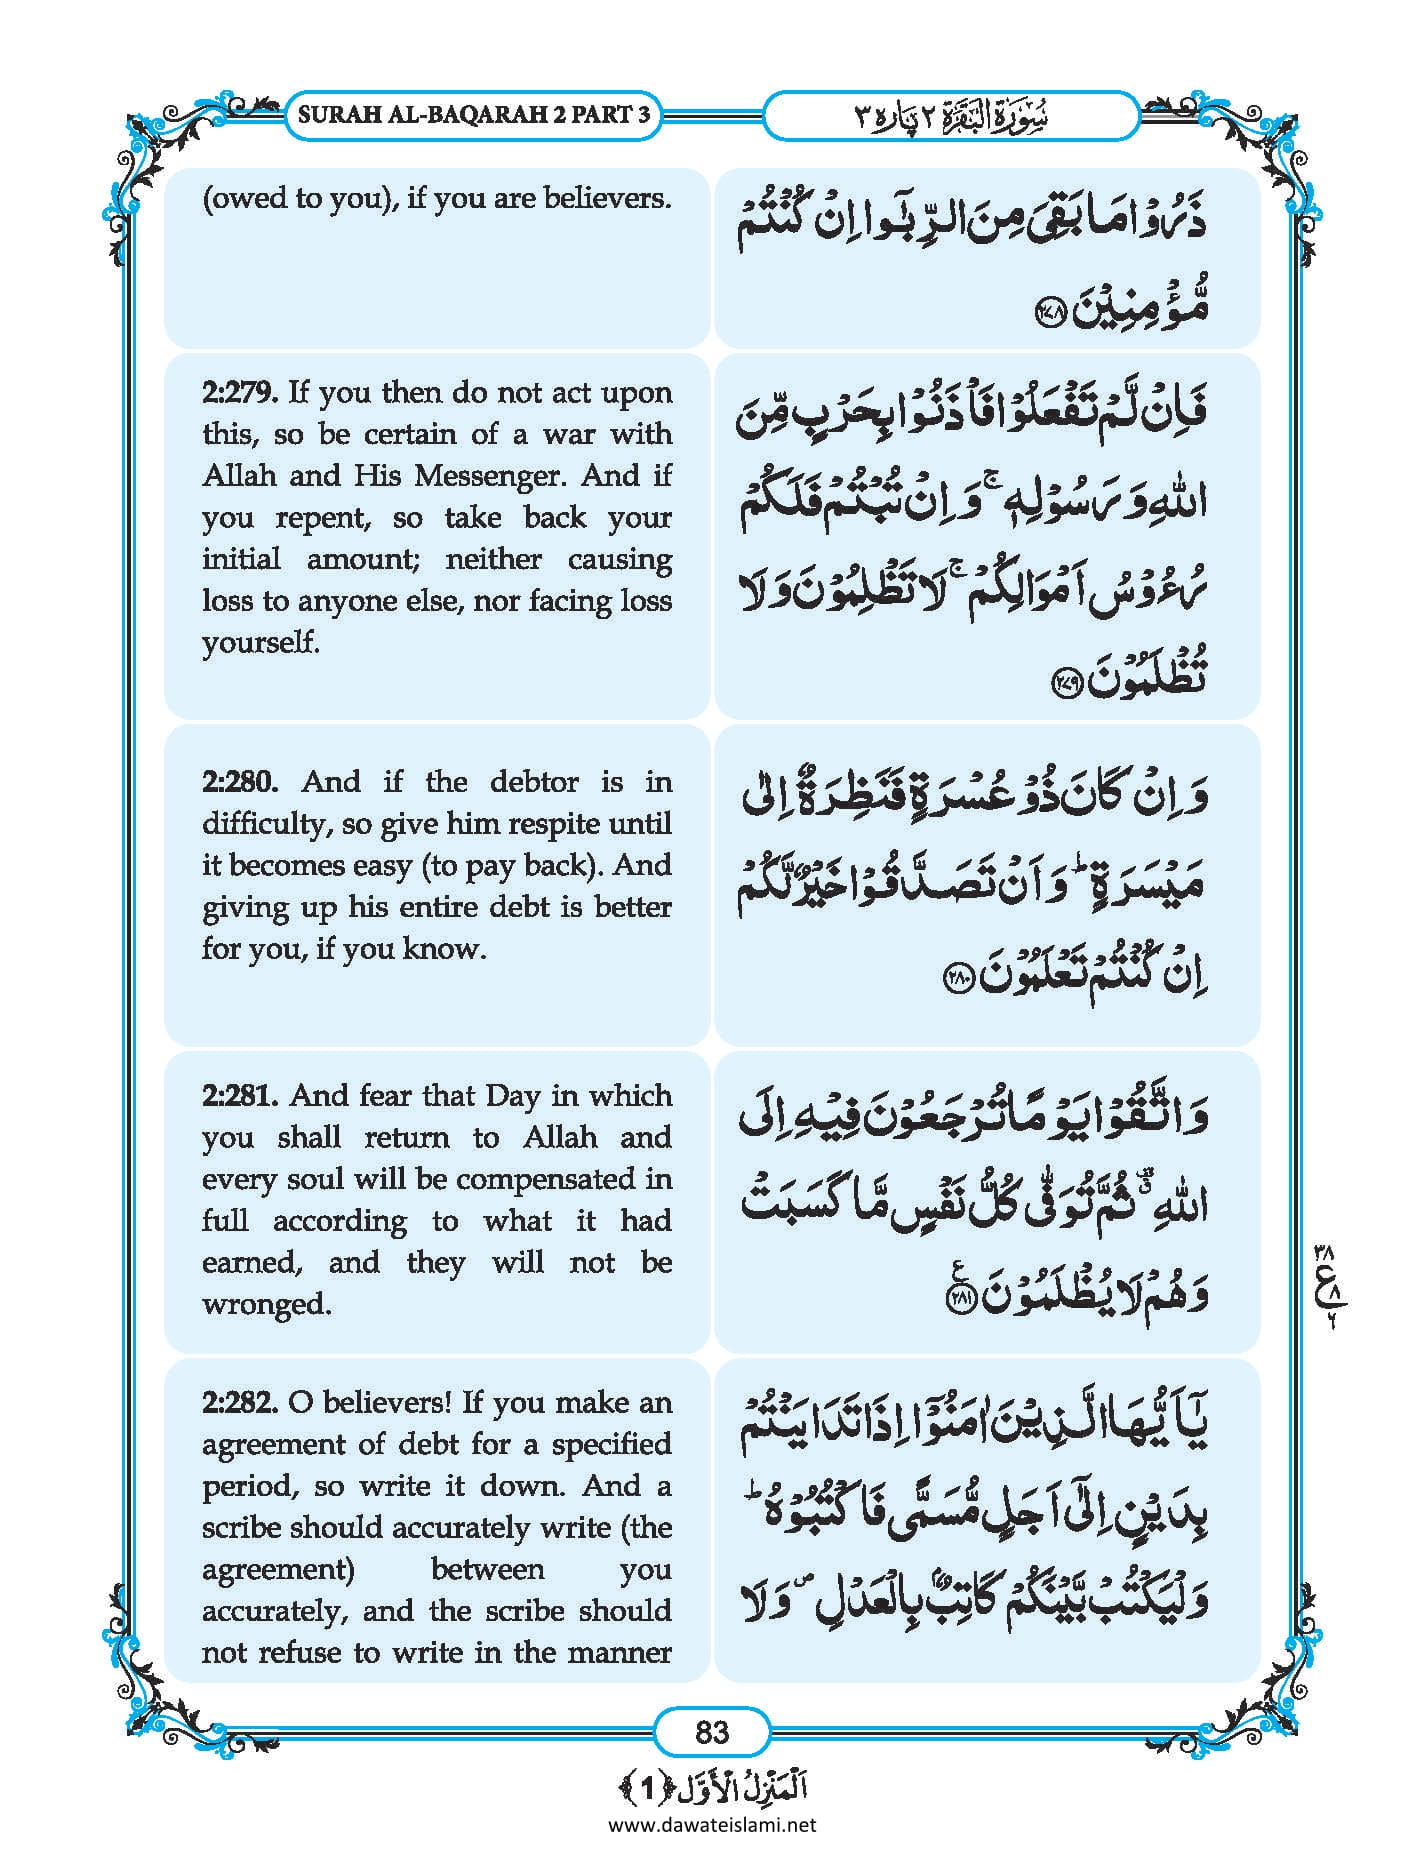 SURAH AL-BAQARAH 2 PART 3
سُوْرَةُ الْبَقَرَة ٢ پَارہ ٣
(owed to you), if you are believers.
ذَرُوْا مَا بَقِیَ مِنَ الرِّبٰۤوا اِنْ كُنْتُمْ
مُّؤْمِنِیْنَ ﴿۲۷۸﴾
2:279. If you then do not act upon
this, so be certain of a war with
Allah and His Messenger. And if
you repent, so take back your
initial amount; neither causing
loss to anyone else, nor facing loss
yourself.
فَاِنْ لَّمْ تَفْعَلُوْا فَاْذَنُوْا بِحَرْبٍ مِّنَ
اللّٰهِ وَ رَسُوْلِهٖ ۚ وَ اِنْ تُبْتُمْ فَلَكُمْ
رُءُوْسُ اَمْوَالِكُمْ ۚ لَا تَظْلِمُوْنَ وَ لَا
تُظْلَمُوْنَ ﴿۲۷۹﴾
2:280. And if the debtor is in
difficulty, so give him respite until
it becomes easy (to pay back). And
giving up his entire debt is better
for you, if you know.
وَ اِنْ كَانَ ذُوْ عُسْرَةٍ فَنَظِرَةٌ اِلٰى
مَیْسَرَةٍ ؕ وَ اَنْ تَصَدَّقُوْا خَیْرٌ لَّكُمْ
اِنْ كُنْتُمْ تَعْلَمُوْنَ ﴿۲۸۰﴾
2:281. And fear that Day in which
you shall return to Allah and
every soul will be compensated in
full according to what it had
earned, and they will not be
wronged.
وَ اتَّقُوْا یَوْمًا تُرْجَعُوْنَ فِیْهِ اِلَى
اللّٰهِ ۗ ثُمَّ تُوَفّٰى كُلُّ نَفْسٍ مَّا كَسَبَتْ
وَ هُمْ لَا یُظْلَمُوْنَ ﴿۲۸۱﴾ ع
٣٨
ع ٨
٦
2:282. O believers! If you make an
agreement of debt for a specified
period, so write it down. And a
scribe should accurately write (the
agreement) between you
accurately, and the scribe should
not refuse to write in the manner
یٰۤاَیُّهَا الَّذِیْنَ اٰمَنُوْۤا اِذَا تَدَایَنْتُمْ
بِدَیْنٍ اِلٰۤى اَجَلٍ مُّسَمًّى فَاكْتُبُوْهُ ؕ
وَ لْیَكْتُبْ بَّیْنَكُمْ كَاتِبٌۢ بِالْعَدْلِ ۪ وَ لَا
83
اَلْمَنْزِلُ الْاَوَّل ﴿1﴾
www.dawateislami.net